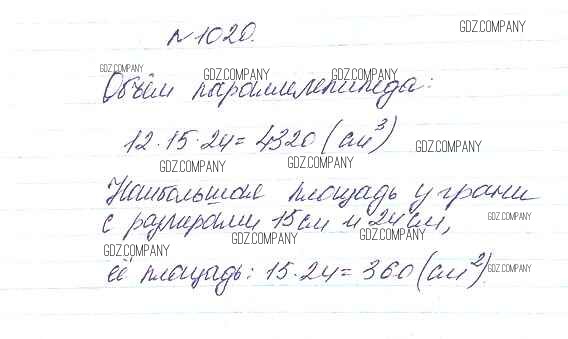 №1020.
GDZ.COMPANY
GDZ.COMPANY
GDZ.COMPANY GDZ.COMPANY
Объём параллелепипеда:
12·15·24=4320(см³)
GDZ.COMPANY
GDZ.COMPANY GDZ.COMPANY
Наибольшая площадь у грани
с размерами 15см и 24см,
GDZ.COMPANY
GDZ.COMPANY GDZ.COMPANY
GDZ.COMPANY
её площадь: 15·24=360(см²)
GDZ.COMPANY